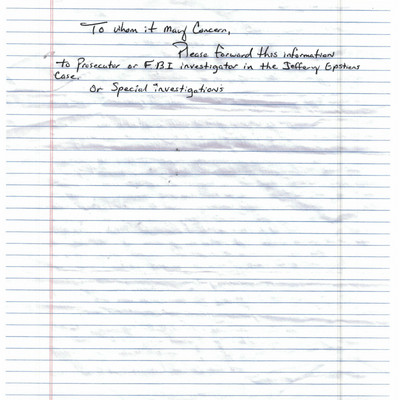 To whom it may Concern,
Please Forward this information
to Prosecutor or FBI investigator in the Jefferry Epstiens
Case.
Or Special investigations